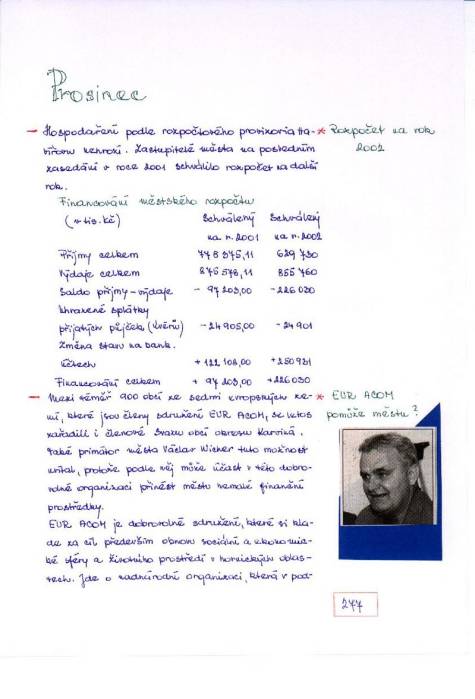 Prosinec
Hospodaření podle rozpočtového provizoria Ha-
vířovu nehrozí. Zastupitelé města na posledním
zasedání v roce 2001 schválilo rozpočet na další
rok.
Rozpočet na rok
2002
Financování městského rozpočtu
(v tis. Kč) Schválený Schválený
na r. 2001 na r. 2002
Příjmy celkem 778 375,11 629 730
Výdaje celkem 875 578,11 855 760
Saldo příjmy - výdaje - 97 203,00 -226 030
Uhrazené splátky
přijatých půjček (úvěrů) -24 905,00 -24 901
Změna stavu na bank.
účtech +122 108,00 +250 931
Financování celkem + 97 203,00 +226 030
Mezi téměř 900 obcí ze sedmi evropských ze-
mí, které jsou členy sdružení EUR ACOM, se letos
zařadili i členové Svazu obcí okresu Karviná.
Také primátor města Václav Wisner tuto možnost
uvítal, protože podle něj může účast v této dobro-
volné organizaci přinést městu nemalé finanční
prostředky.
EUR ACOM je dobrovolné sdružení, které si kla-
de za cíl především obnovu sociální a ekonomic-
ké sféry a životního prostředí v hornických oblas-
tech. Jde o nadnárodní organizaci, která v pod-
EUR ACOM
pomůže městu?
277